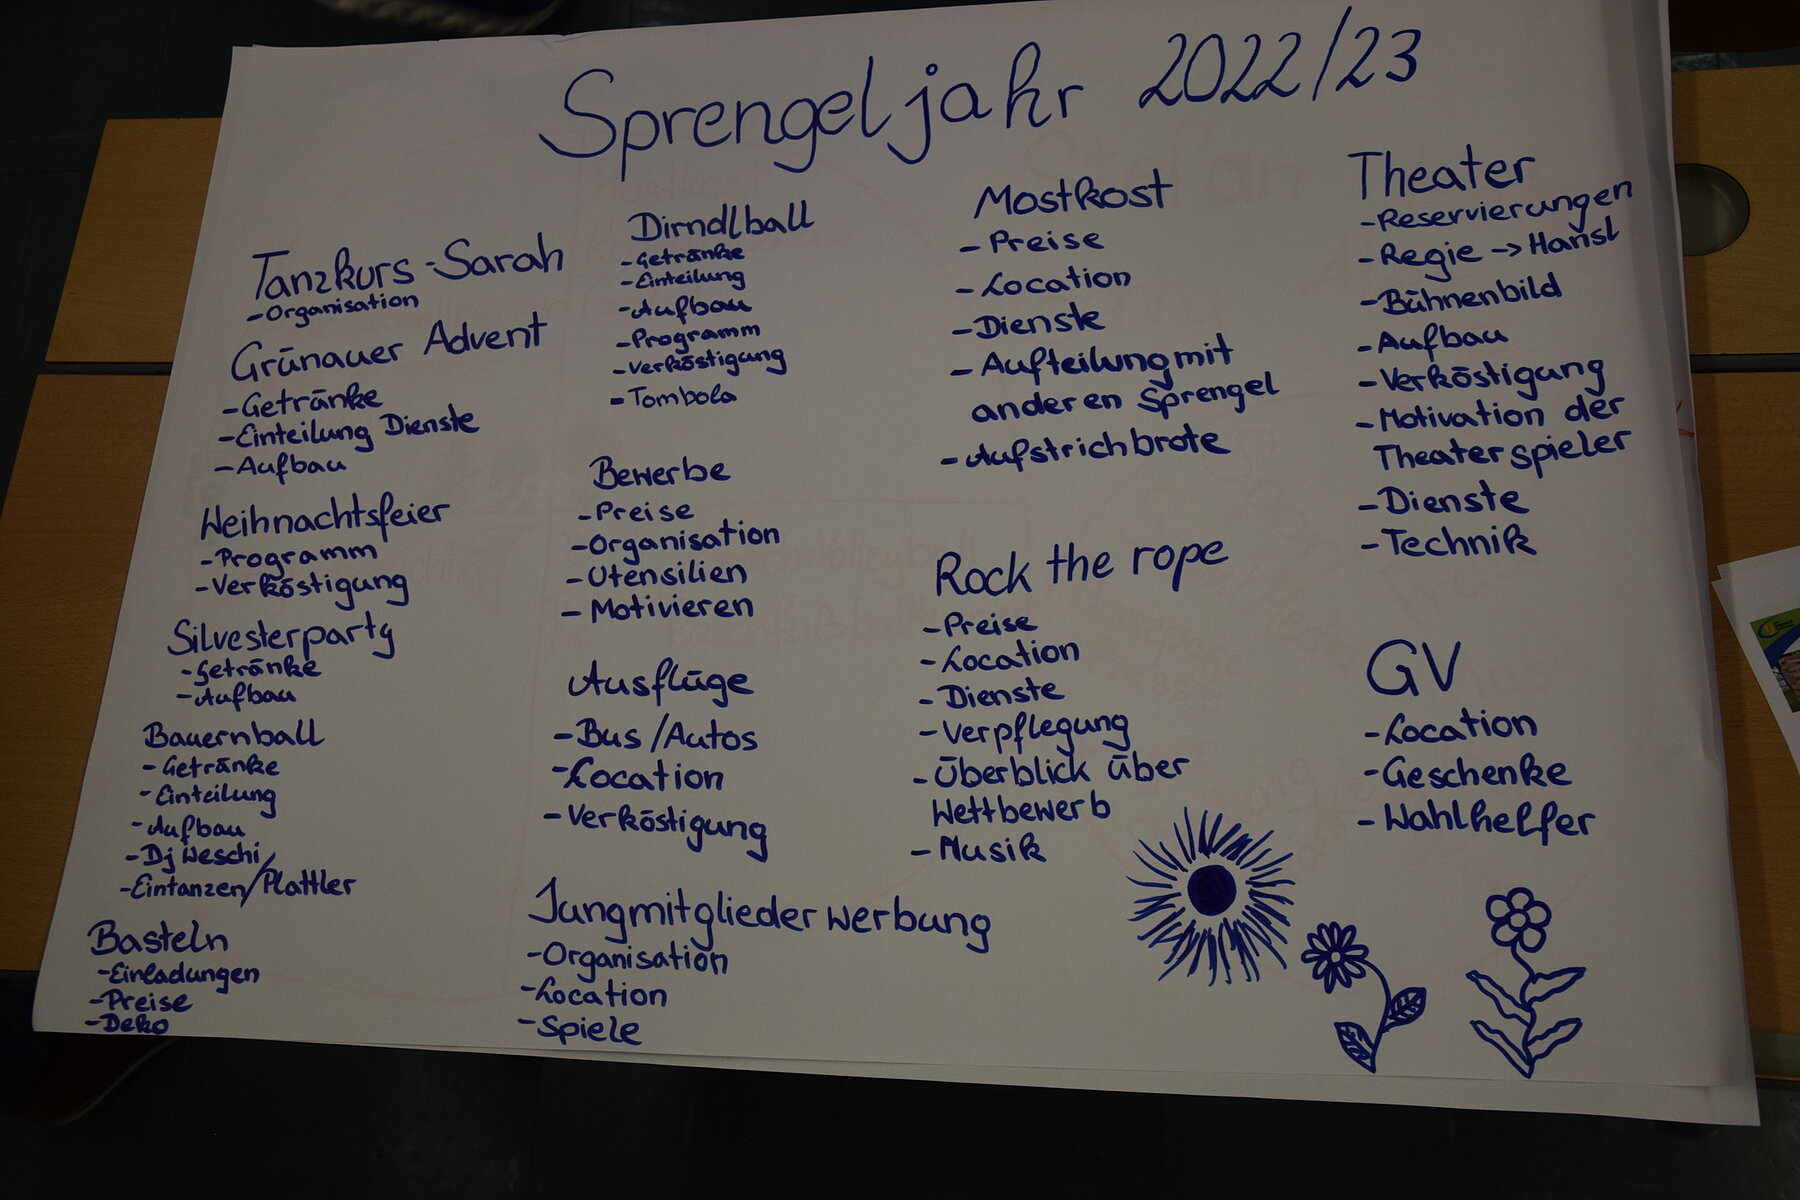 Sprengeljahr 2022/23
Tanzkurs - Sarah
- Organisation
Grünauer Advent
- Getränke
- Einteilung Dienste
- Aufbau
Weihnachtsfeier
- Programm
- Verköstigung
Silvesterparty
- Getränke
- Aufbau
Bauernball
- Getränke
- Einteilung
- Aufbau
- Dj Weschi
- Eintanzen/Plattler
Basteln
- Einladungen
- Preise
- Deko
Dirndlball
- Getränke
- Einteilung
- Aufbau
- Programm
- Verköstigung
- Tombola
Bewerbe
- Preise
- Organisation
- Utensilien
- Motivieren
Ausflüge
- Bus/Autos
- Location
- Verköstigung
Jungmitgliederwerbung
- Organisation
- Location
- Spiele
Mostkost
- Preise
- Location
- Dienste
- Aufteilung mit
anderen Sprengel
- Aufstrichbrote
Rock the rope
- Preise
- Location
- Dienste
- Verpflegung
- Überblick über
Wettbewerb
- Musik
Theater
- Reservierungen
- Regie -> Hansl
- Bühnenbild
- Aufbau
- Verköstigung
- Motivation der
Theaterspieler
- Dienste
- Technik
GV
- Location
- Geschenke
- Wahlhelfer